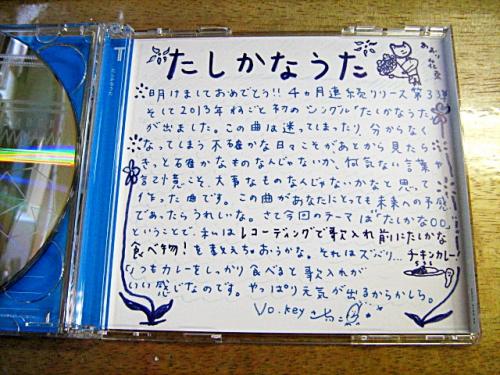 たしかなうた
明けましておめでとう!! 4ヵ月連続リリース第3弾
そして2013年ねごと初のシングル「たしかなうた」
が出ました。この曲は迷ってしまったり、分からなく
なってしまう不確かな日々こそがあとから見たら
きっと確かなものなんじゃないか、何気ない言葉や
表情こそ、大事なものなんじゃないかなと思って
作った曲です。この曲があなたにとっても未来への予感
であったらうれしいな。さて今回のテーマは「たしかな○○」
ということで、私はレコーディングで歌入れ前にたしかな
食べ物!を考えちゃおうかな。それはズバリ…チキンカレー!
いつもカレーをしっかり食べると歌入れが
いい感じなのです。やっぱり元気が出るからかしら。
Vo. key